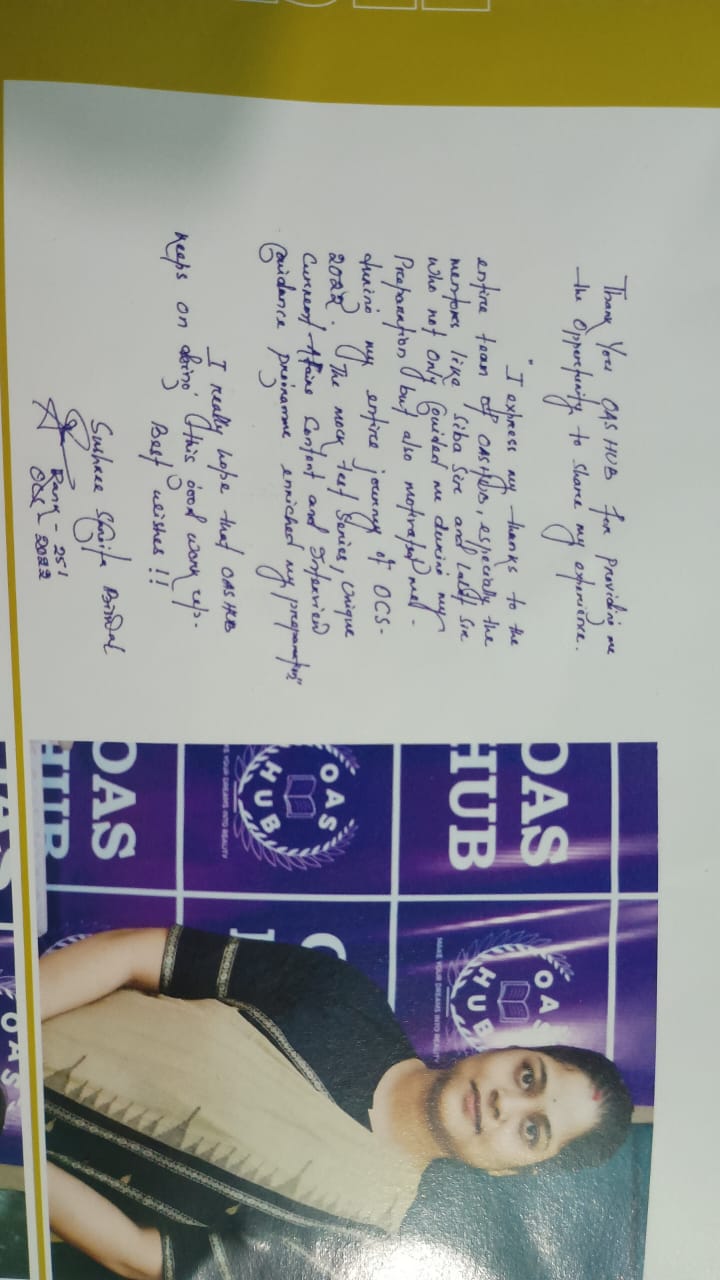 Thank You OAS HUB for providing me
the opportunity to share my experience.
"I express my thanks to the
entire team of OASHUB, especially the
mentors like Siba Sir and Lalit Sir
who not only guided me during my
Preparation but also motivated me
during my entire journey of OCS-
2022. The mock test Series, Unique
Current Affairs Content and Interview
Guidance programme enriched my preparation"
I really hope that OAS HUB
keeps on doing this good work
Best wishes!!
Sushree
Rank - 251
OCS - 2022
OAS
HUB
OAS
HUB
MAKE YOUR DREAMS INTO REALITY
OAS
HUB
YOUR DREAMS INTO REALITY
OAS
HUB
OAS